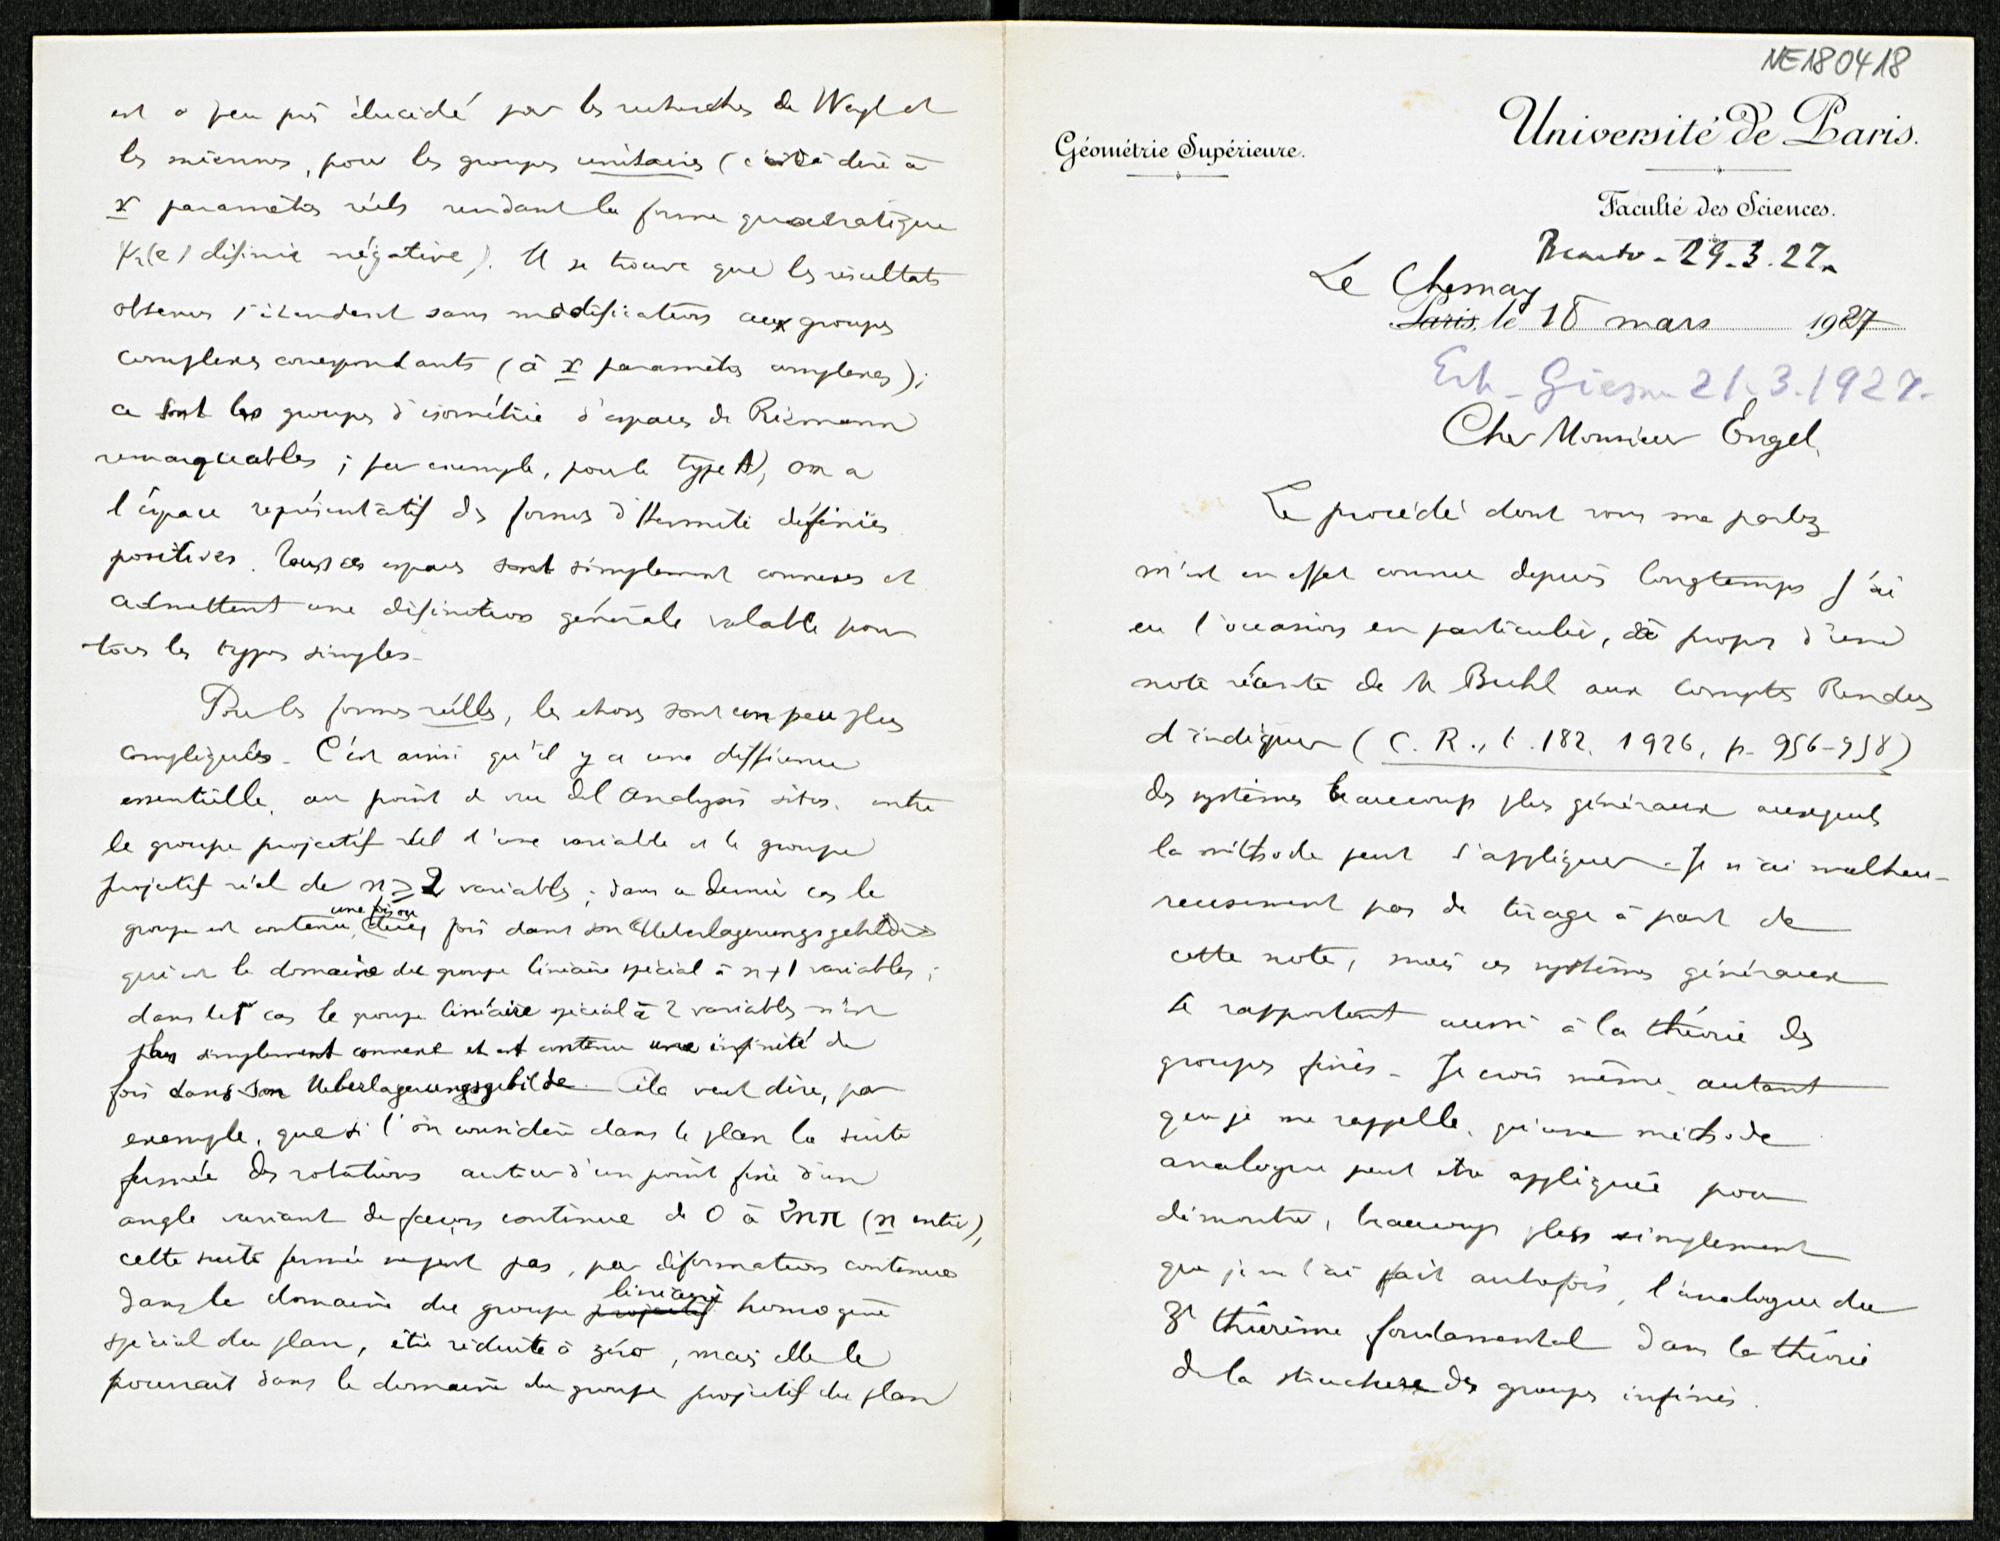 NE180418
Université de Paris.
Géométrie Supérieure.
Faculté des Sciences.
Beantw. 29.3.27.
Le Chesnay
Paris, le 18 mars 1927
Erh. Giessen 21.3.1927.
Cher Monsieur Engel,
Le procédé dont vous me parlez
m'est en effet connu depuis longtemps J'ai
eu l'occasion en particulier, à propos d'une
note récente de M Buhl aux Comptes Rendus
d'indiquer (C. R., t. 182, 1926, p. 956-958)
des systèmes beaucoup plus généraux auxquels
la méthode peut s'appliquer. Je n'ai malheu-
reusement pas de tirage à part de
cette note, mais ces systèmes généraux
se rapportent aussi à la théorie des
groupes finis. Je crois même, autant
que je me rappelle, qu'une méthode
analogue peut etre appliquée pour
démontrer, beaucoup plus simplement
que je ne l'ai fait autrefois, l'analogue du
3e théorème fondamental dans la théorie
de la structure des groupes infinis.
est à peu près élucidé par les recherches de Weyl et
les miennes, pour les groupes unitaires (c'est à dire à
r paramètres réels rendant la forme quadratique
ψ2(e) définie négative). Il se trouve que les résultats
obtenus s'étendent sans modifications aux groupes
complexes correspondants (à r paramètres complexes);
ce sont les groupes d'isométrie d'espaces de Riemann
remarquables; par exemple, pour le type A), on a
l'espace représentatif des formes d'Hermite définies
positives. Tous ces espaces sont simplement connexes et
admettent une définition générale valable pour
tous les types simples.
Pour les formes réelles, les choses sont un peu plus
compliquées. C'est ainsi qu'il y a une différence
essentielle, au point de vue de l'Analysis situs, entre
le groupe projectif réel d'une variable et le groupe
projectif réel de n ≥ 2 variables; dans ce dernier cas le
groupe est contenu une fois ou deux fois dans son Ueberlagerungsgebilde
qui est le domaine du groupe linéaire spécial à n+1 variables;
dans le 1er cas le groupe linéaire spécial à 2 variables n'est
plus simplement connexe et est contenu une infinité de
fois dans son Ueberlagerungsgebilde. Cela veut dire, par
exemple, que si l'on considère dans le plan la suite
fermée des rotations autour d'un point fixe d'un
angle variant de façon continue de 0 à 2nπ (n entier),
cette suite fermée ne peut pas, par déformations continues
dans le domaine du groupe projectif linéaire homogène
spécial du plan, être réduite à zéro, mais elle le
pourrait dans le domaine du groupe projectif du plan